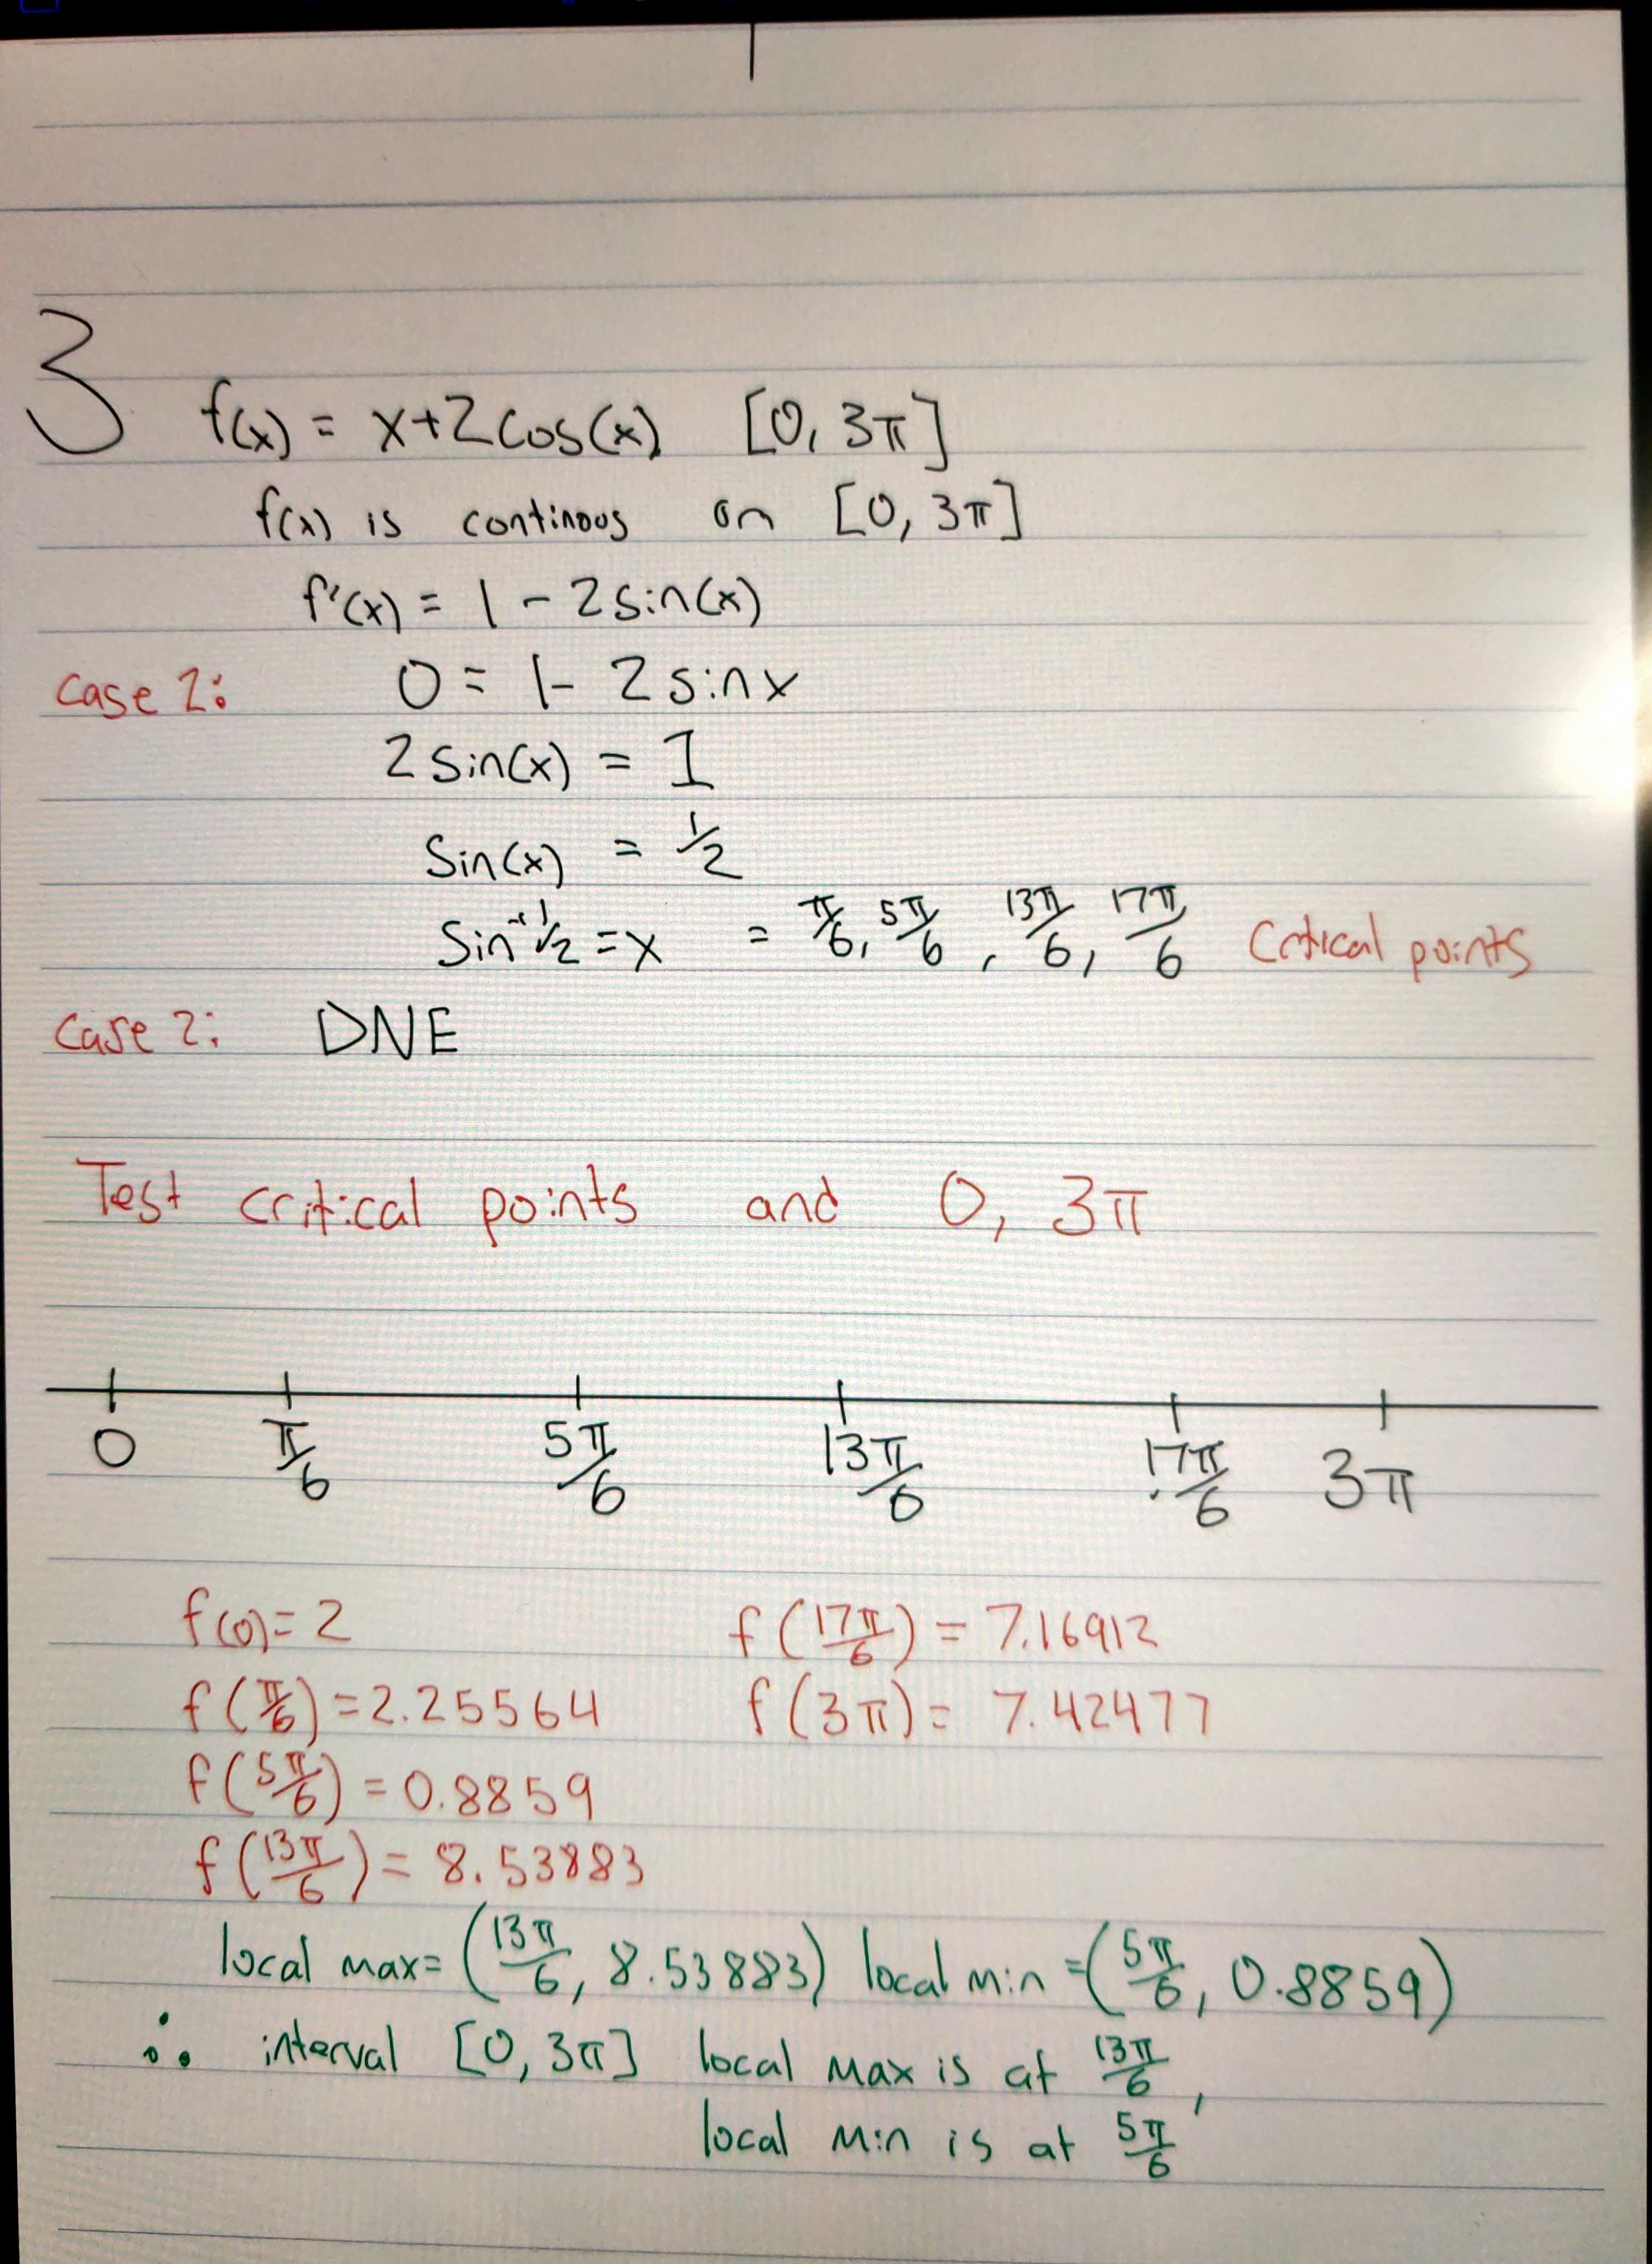 3
f(x) = x+2cos(x) [0, 3π]
f(x) is continous on [0, 3π]
f'(x) = 1 - 2sin(x)
case 2: 0 = 1 - 2sinx
2sin(x) = 1
Sin(x) = 1/2
Sin⁻¹ 1/2 = x = π/6, 5π/6, 13π/6, 17π/6 Crtical points
Case 2: DNE
Test critical points and 0, 3π
0 π/6 5π/6 13π/6 17π/6 3π
f(0)=2 f(17π/6) = 7.16912
f(π/6)=2.25564 f(3π) = 7.42477
f(5π/6) = 0.8859
f(13π/6) = 8.53883
local max=(13π/6, 8.53883) local min=(5π/6, 0.8859)
∴ interval [0, 3π] local max is at 13π/6,
local min is at 5π/6